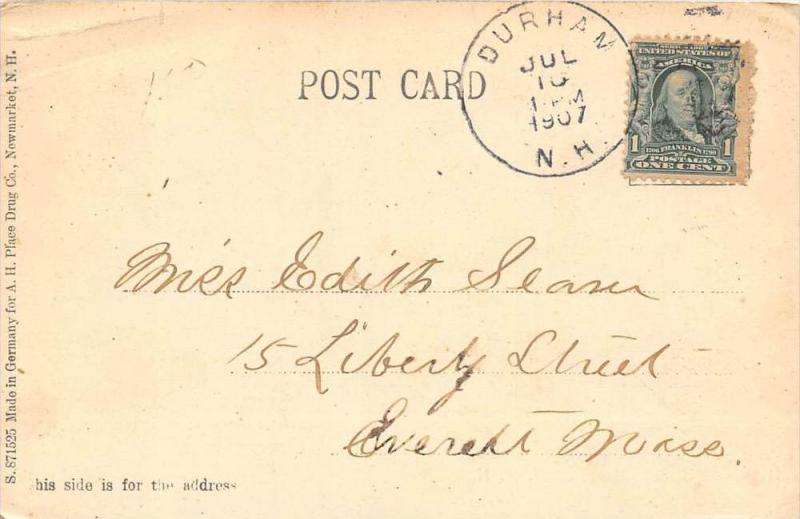 POST CARD
DURHAM
JUL
1907
N. H.
SERIES 1902
UNITED STATES OF
AMERICA
1 1706 FRANKLIN 1790 1
POSTAGE
ONE CENT
Miss Edith
15 Liberty Street
Everett Mass.
his side is for the address
S. 871525 Made in Germany for A. H. Place Drug Co., Newmarket, N. H.